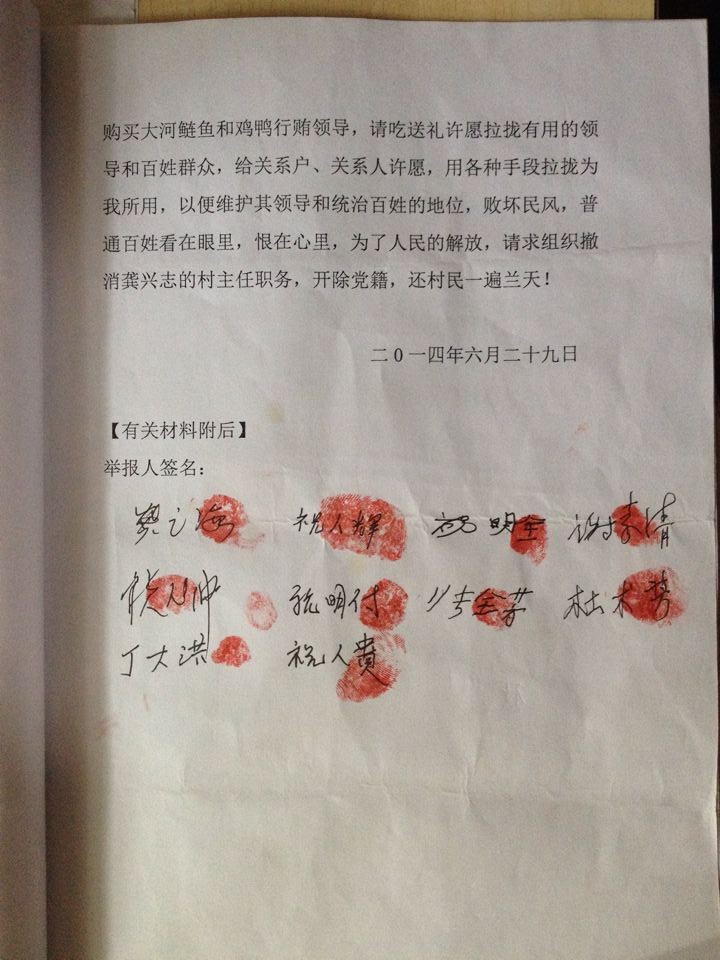 购买大河鲢鱼和鸡鸭行贿领导，请吃送礼许愿拉拢有用的领
导和百姓群众，给关系户、关系人许愿，用各种手段拉拢为
我所用，以便维护其领导和统治百姓的地位，败坏民风，普
通百姓看在眼里，恨在心里，为了人民的解放，请求组织撤
消龚兴志的村主任职务，开除党籍，还村民一遍兰天！
二0一四年六月二十九日
【有关材料附后】
举报人签名：
祝人辉 明全
明付 杜木芳
丁大洪 祝人贵